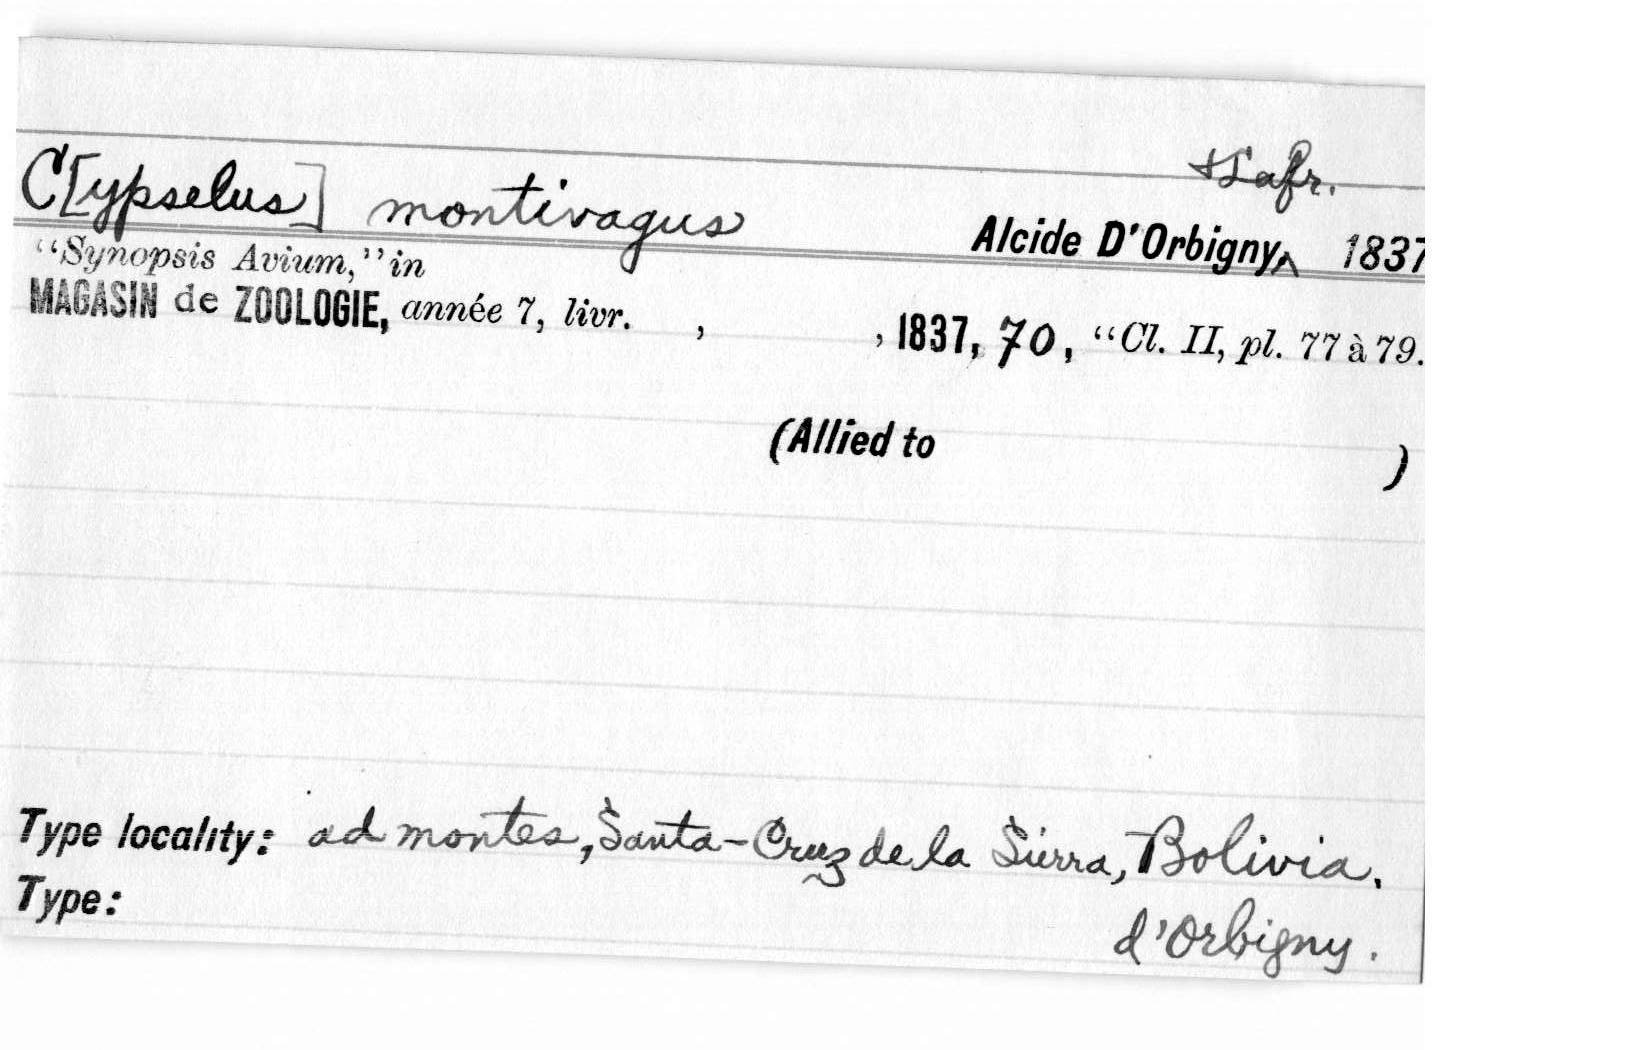 +Lafr.
C[ypselus] montivagus Alcide D'Orbigny‸ 1837
“Synopsis Avium,” in
MAGASIN de ZOOLOGIE, année 7, livr. , , 1837, 70, “Cl. II, pl. 77 à 79.
(Allied to )
Type locality: ad montes, Santa-Cruz de la Sierra, Bolivia.
Type: d'Orbigny.